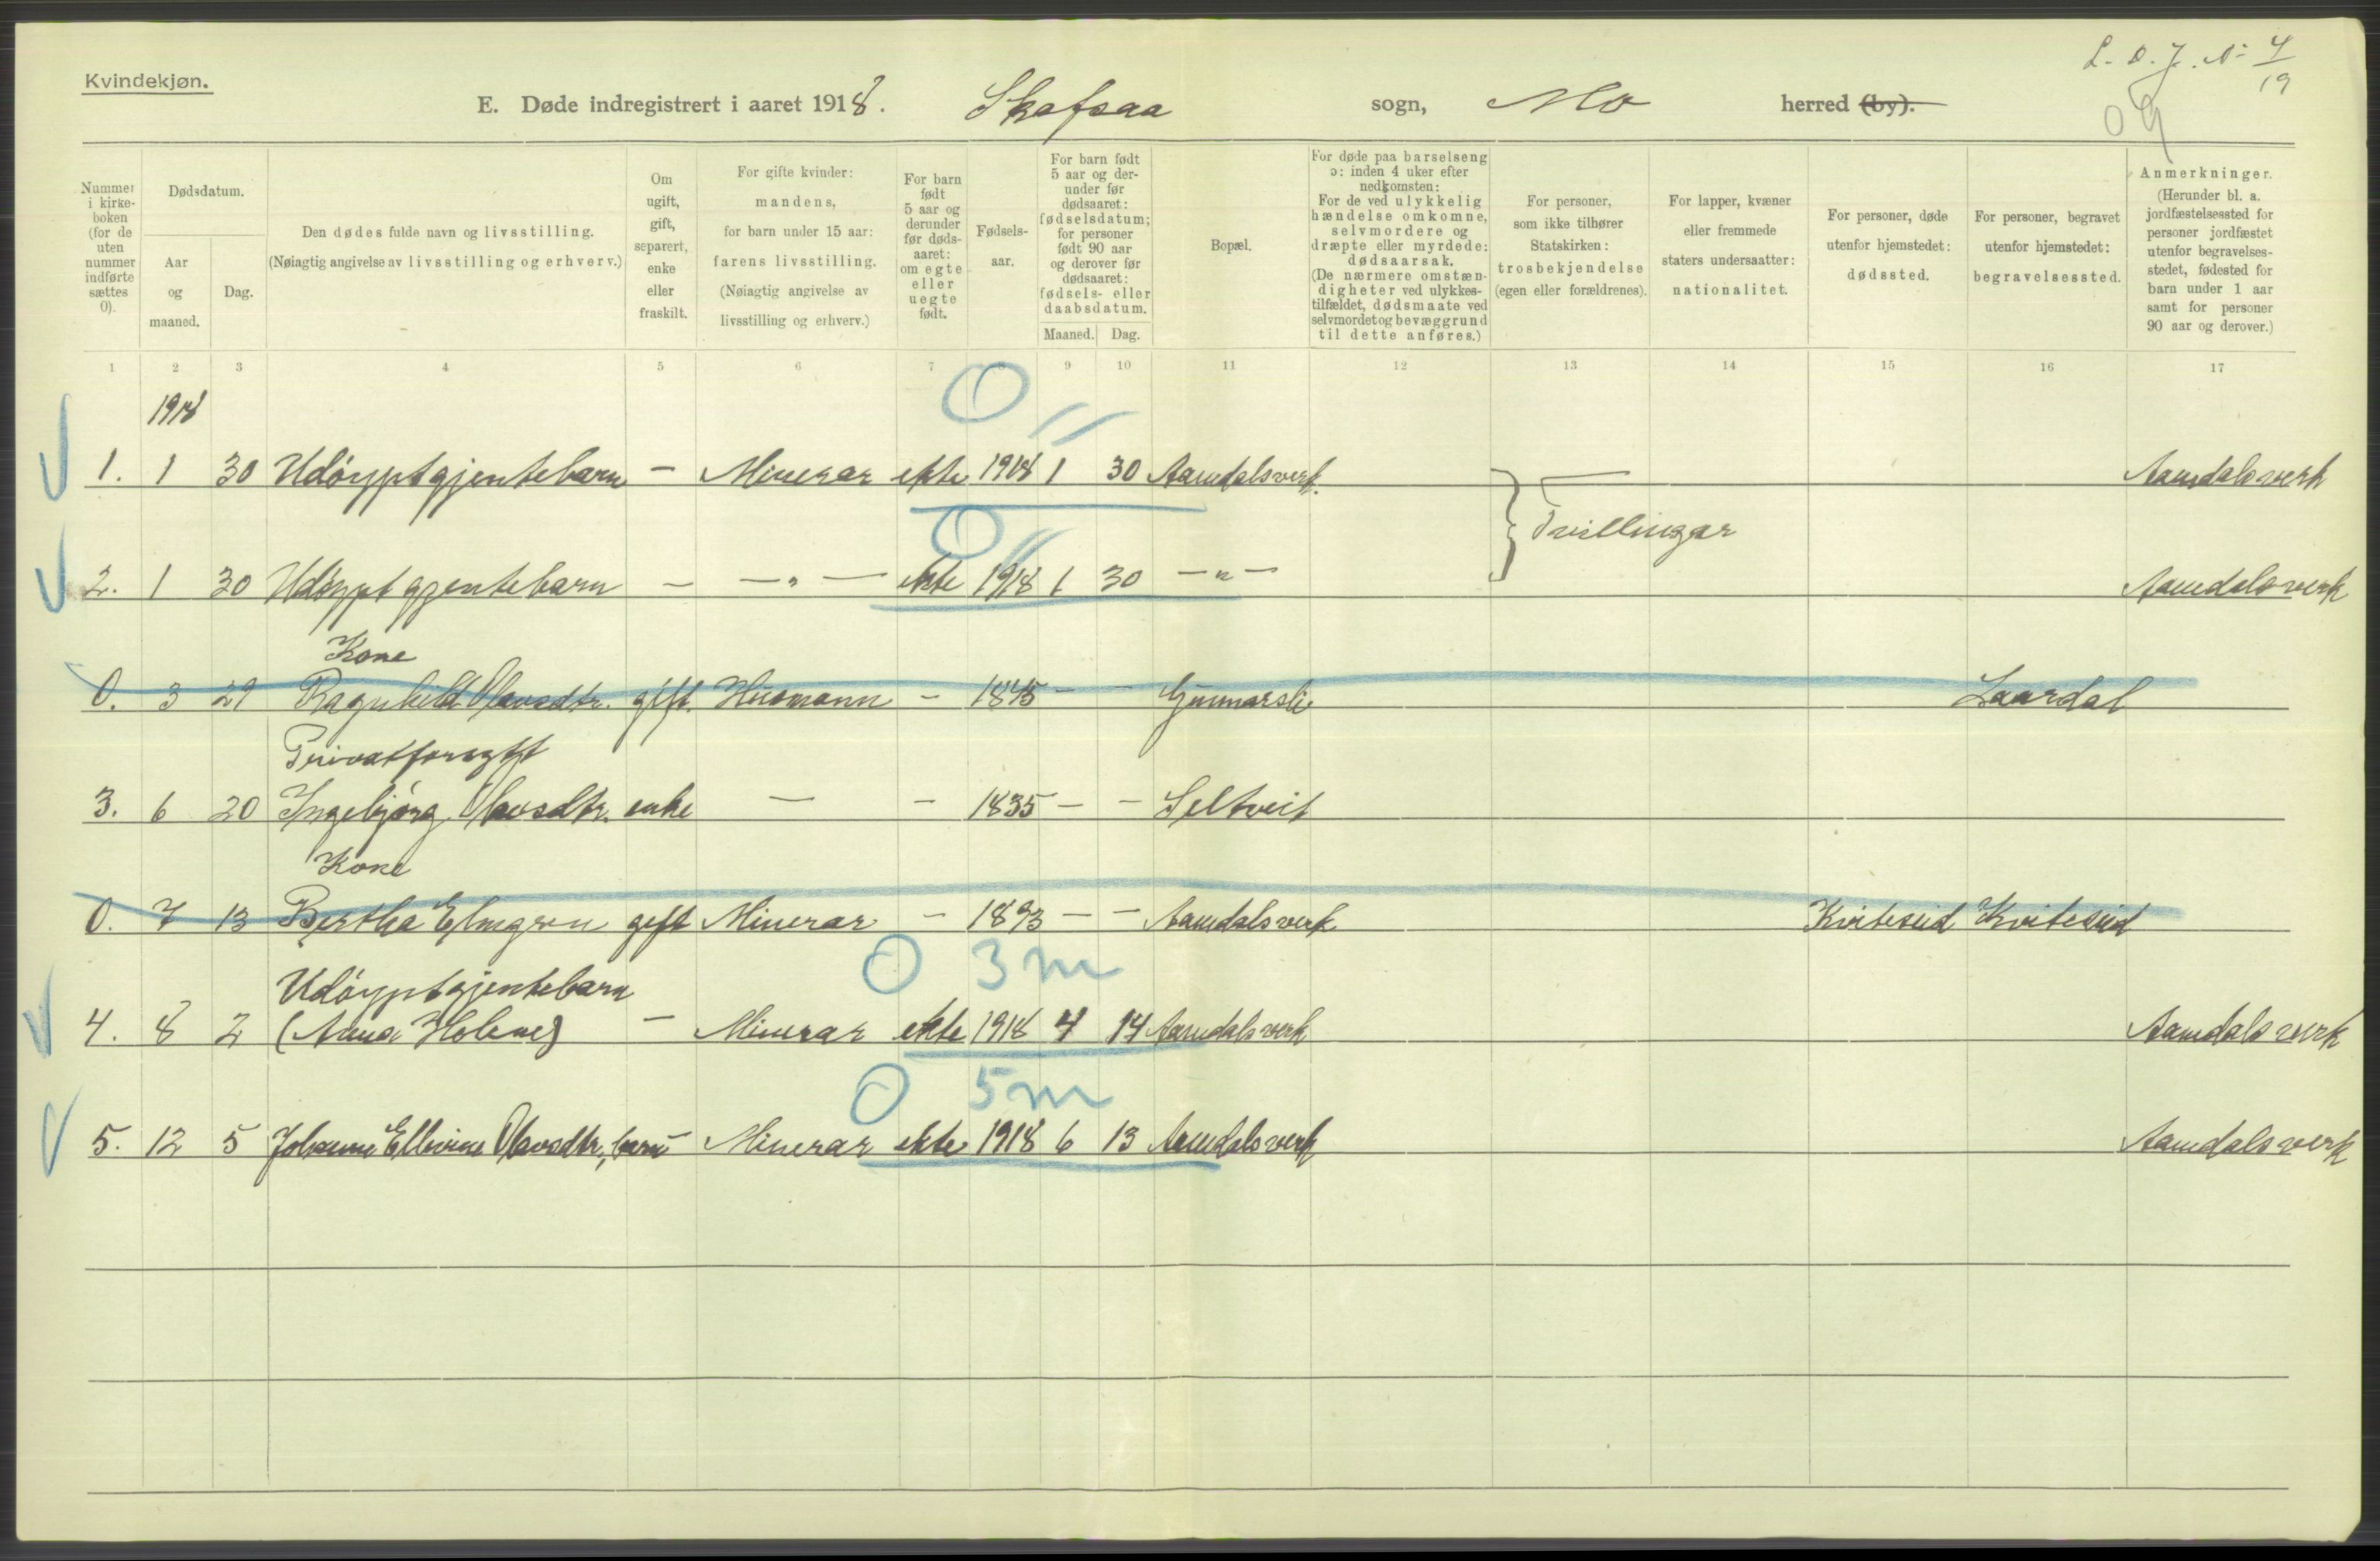 Kvindekjøn.
E. Døde indregistrert i aaret 1918. Skafsaa sogn, Mo herred (by).
4/19
09
Nummer i kirkeboken (for de uten nummer indførte sættes 0).
Dødsdatum.
Aar og maaned.
Dag.
Den dødes fulde navn og livsstilling.
(Nøiagtig angivelse av livsstilling og erhverv.)
Om ugift, gift, separert, enke eller fraskilt.
For gifte kvinder: mandens, for barn under 15 aar: farens livsstilling.
(Nøiagtig angivelse av livsstilling og erhverv.)
For barn født 5 aar og derunder før dødsaaret: om egte eller uegte født.
Fødselsaar.
For barn født 5 aar og derunder før dødsaaret: fødselsdatum; for personer født 90 aar og derover før dødsaaret: fødsels- eller daabsdatum.
Maaned. Dag.
Bopæl.
For døde paa barselseng ɔ: inden 4 uker efter nedkomsten:
For de ved ulykkelig hændelse omkomne, selvmordere og dræpte eller myrdede: dødsaarsak.
(De nærmere omstændigheter ved ulykkestilfældet, dødsmaate ved selvmordet og bevæggrund til dette anføres.)
For personer, som ikke tilhører Statskirken: trosbekjendelse (egen eller forældrenes).
For lapper, kvæner eller fremmede staters undersaatter: nationalitet.
For personer, døde utenfor hjemstedet: dødssted.
For personer, begravet utenfor hjemstedet: begravelsessted.
Anmerkninger.
(Herunder bl. a. jordfæstelsessted for personer jordfæstet utenfor begravelsesstedet, fødested for barn under 1 aar samt for personer 90 aar og derover.)
1 2 3 4 5 6 7 8 9 10 11 12 13 14 15 16 17
1918
0
1. 1 30 Udøypt gjentebarn – Minerar ekte 1918 1 30 Aamdalsverk. Aamdalsverk
Tvillingar
0
2. 1 30 Udøypt gjentebarn – –„– ekte 1918 1 30 –„– Aamdalsverk
Kone
0. 3 29 Ragnhild Olavsdtr. gift. Husmann – 1845 – – Gunnarsli Laardal
Privatforsytt
3. 6 20 Ingebjørg Olavsdtr. enke – – 1835 – – Seltveit
Kone
0. 7 13 Bertha Elmgren gift Minerar – 1893 – – Aamdalsverk Kviteseid Kviteseid
0 3 m
Udøypt gjentebarn
4. 8 2 (Anna Holene) – Minerar ekte 1918 4 14 Aamdalsverk Aamdalsverk
0 5 m
5. 12 5 Johanne Ellevine Olavsdtr., barn – Minerar ekte 1918 6 13 Aamdalsverk Aamdalsverk